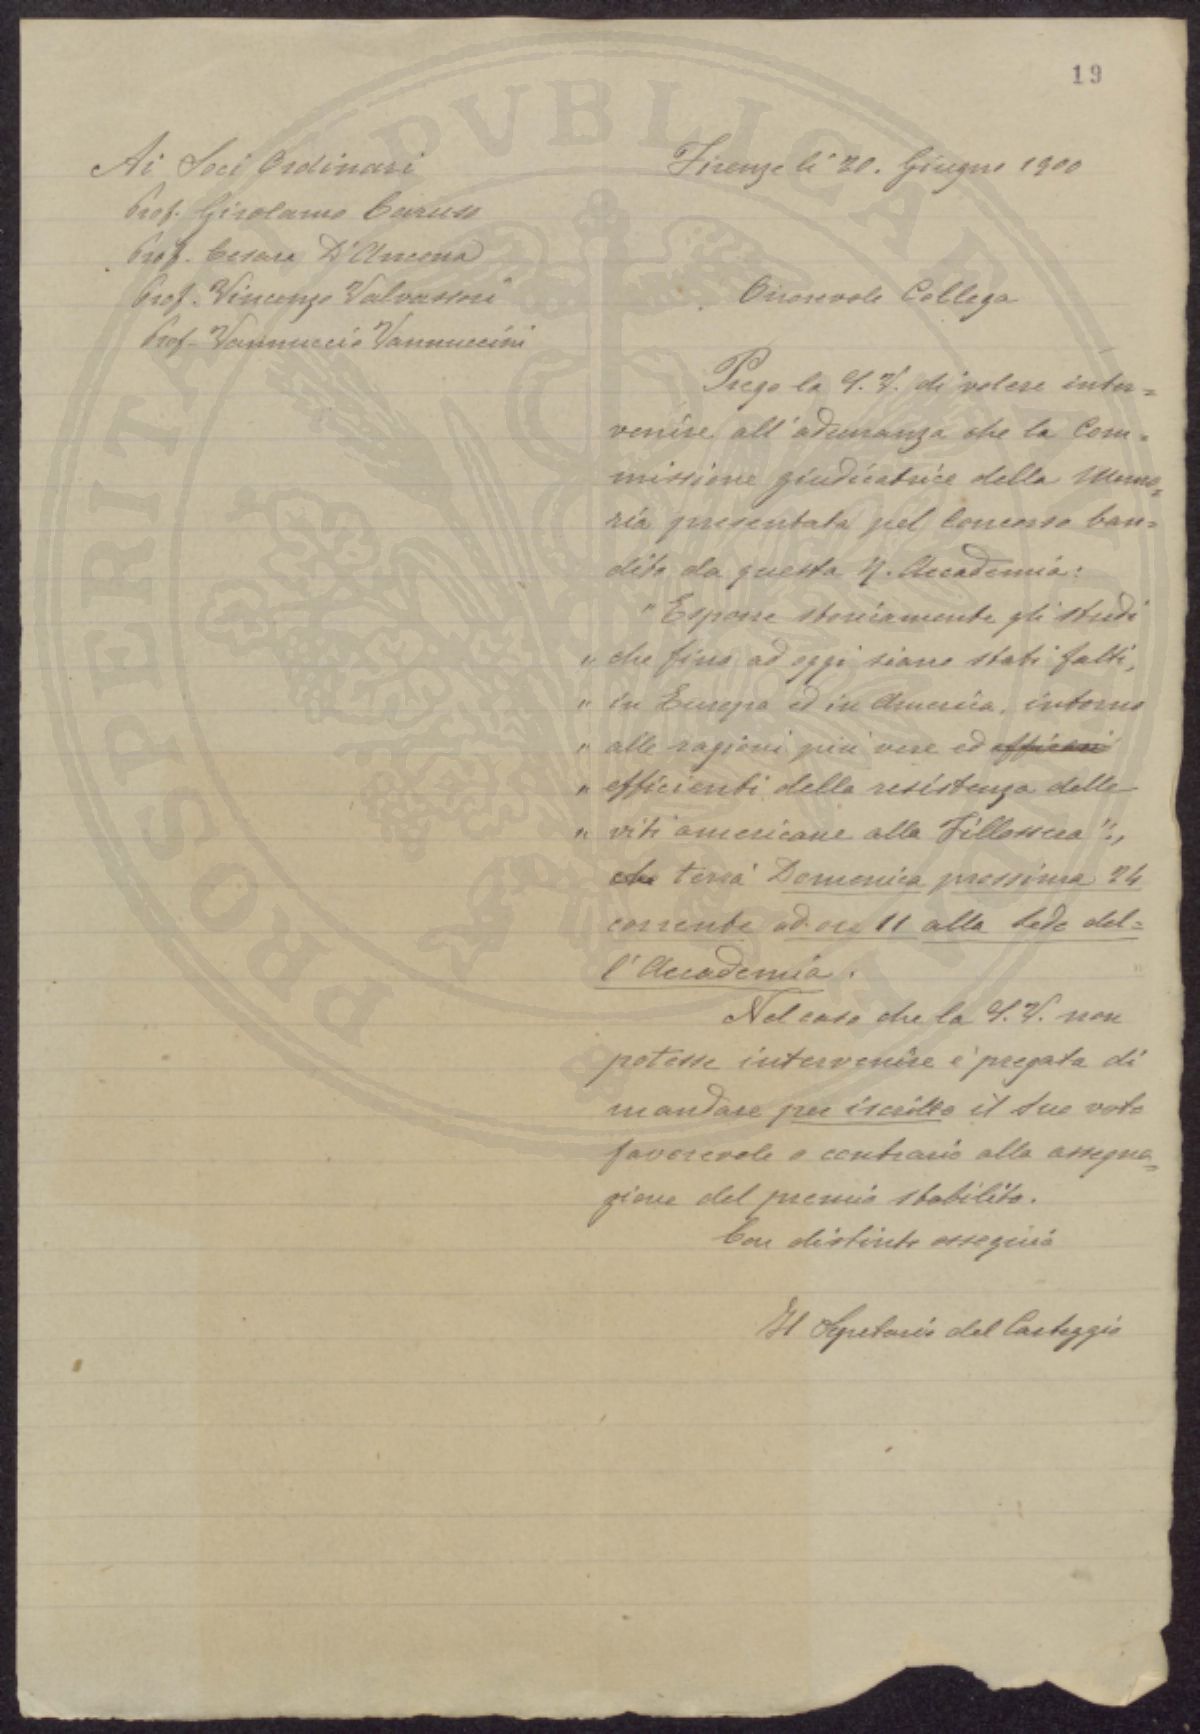 19
Ai Soci Ordinari
Prof. Girolamo Caruso
Prof. Cesare D'Ancona
Prof. Vincenzo Valvassori
Prof. Vannuccio Vannuccini
Firenze li 20. Giugno 1900
Onorevole Collega
Prego la S. V. di volere inter=
venire all'adunanza che la Com=
missione giudicatrice della Memo=
ria presentata pel Concorso ban=
dito da questa R. Accademia:
"Esporre storicamente gli studi
" che fino ad oggi siano stati fatti,
" in Europa ed in America, intorno
" alle ragioni più vere ed efficaci
" efficienti della resistenza delle
" viti americane alla Fillossera",
che terrà Domenica prossima 24
corrente ad ore 11 alla Sede del=
l'Accademia.
Nel caso che la S. V. non
potesse intervenire è pregata di
mandare per iscritto il suo voto
favorevole o contrario alla assegna=
zione del premio stabilito.
Con distinto ossequio
Il Segretario del Carteggio
PROSPERITATI PVBLICAE